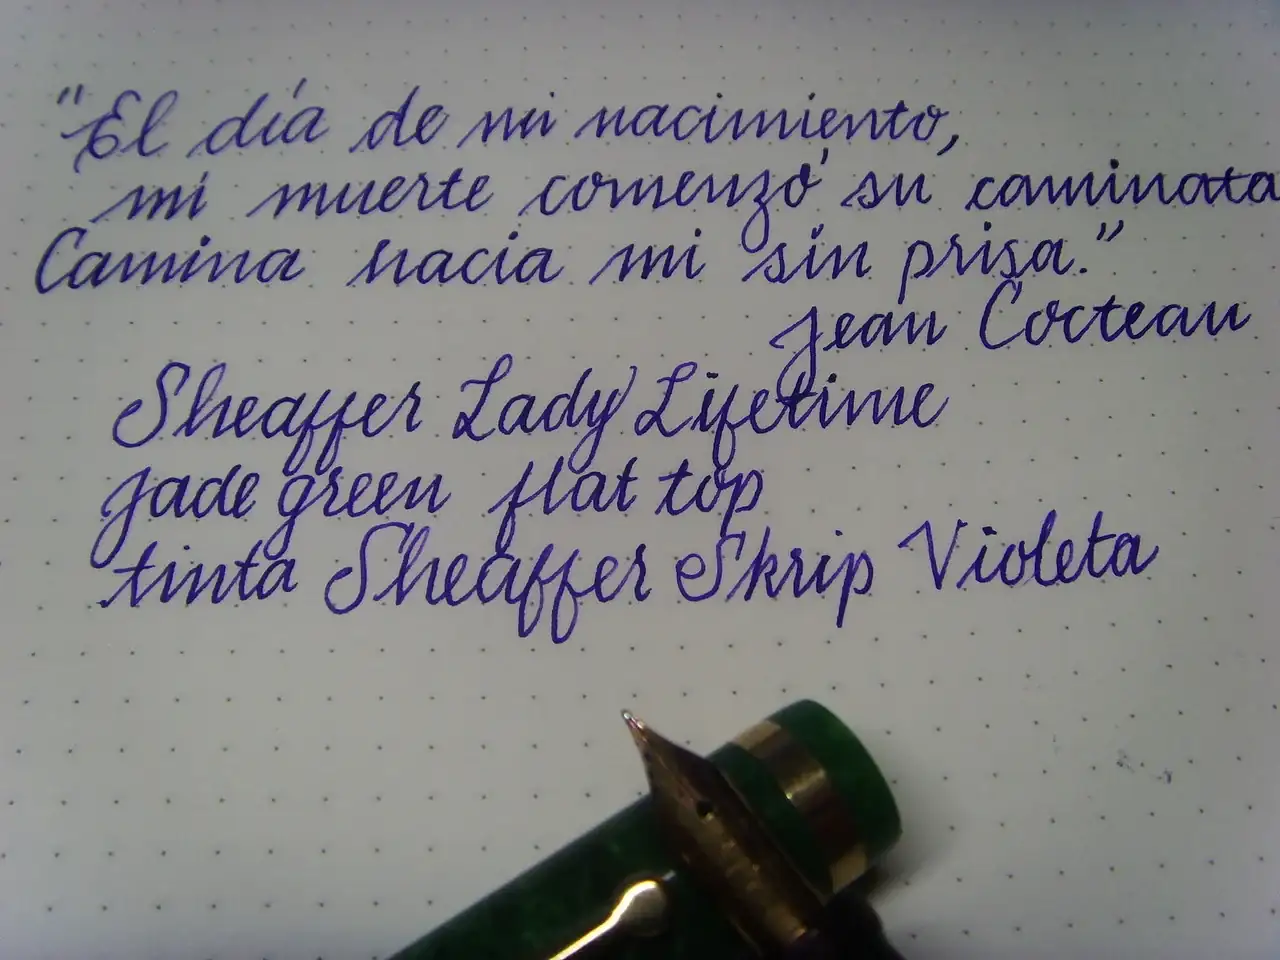 "El día de mi nacimiento,
mi muerte comenzó su caminata
Camina hacia mi sin prisa."
Jean Cocteau
Sheaffer Lady Lifetime
jade green flat top
tinta Sheaffer Skrip Violeta